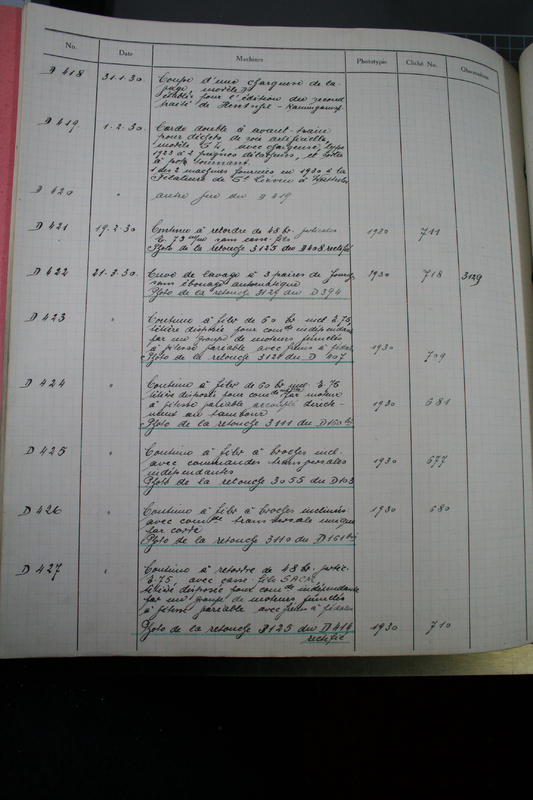 No. Date Machines Phototypie Cliché No. Observations
D 418 31.1.30 Coupe d'une chargeuse de la-
page modèle
établie pour l'édition du second
traité de
D 419 1.2.30 Carde double à avant-train
pour déchets de soie artificielle,
modèle avec chargeuse, type
1923 à 2 peignes détacheurs, et
à pots tournant.
1 des 2 machines fournies en 1930 à la
Filature de
D 420 " autre vue du D 419
D 421 19.2.30 Continu à retordre de 48 br. 1930 711
É. 73 m/m sans casse-fils
Photo de la retouche 3125 du D 408 rectifié
D 422 21.3.30 Cuve de lavage à 3 paires de 1930 718 3129
sans ébouage automatique
Photo de la retouche 3127 du D 394
D 423 " Continu à filer de 60 br. incl. É. 75
têtière disposée pour comde indépendante
par un groupe de moteurs jumelés
à vitesse variable avec 1930 709
Photo de la retouche 3128 du D 407
D 424 " Continu à filer de 60 br. incl. É. 75
têtière disposée pour comde par moteur
à vitesse variable accouplé directe- 1930 681
ment au tambour
Photo de la retouche 3111 du D 160 bis
D 425 " Continu à filer à broches incl. 1930 677
avec commandes transversales
indépendantes
Photo de la retouche 3055 du D 103
D 426 " Continu à filer à broches inclinées 1930 680
avec comde transversale unique
par corde
Photo de la retouche 3110 du D 161 bis
D 427 " Continu à retordre de 48 br.
É. 75 avec casse-fils SACM
têtière disposée pour comde indépendante
par un groupe de moteurs jumelés
à vitesse variable avec
Photo de la retouche 3125 du D 414 1930 710
rectifié